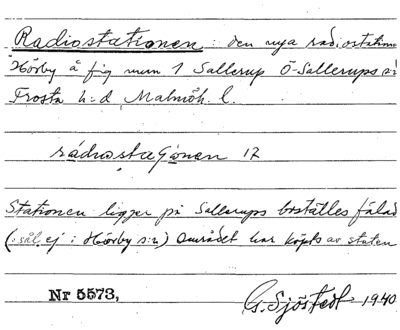 Radiostationen: den nya radiostation
Hörby å fig num 1 Sallerup Ö-Sallerups s:n
Frosta h:d, Malmöh. l.
rádiostaʃɷ́nen 17
Stationen ligger på Sallerups boställes fälad
(: sål. ej i Hörby s:n) Området har köpts av staten
Nr 5573,
G. Sjöstedt 1940